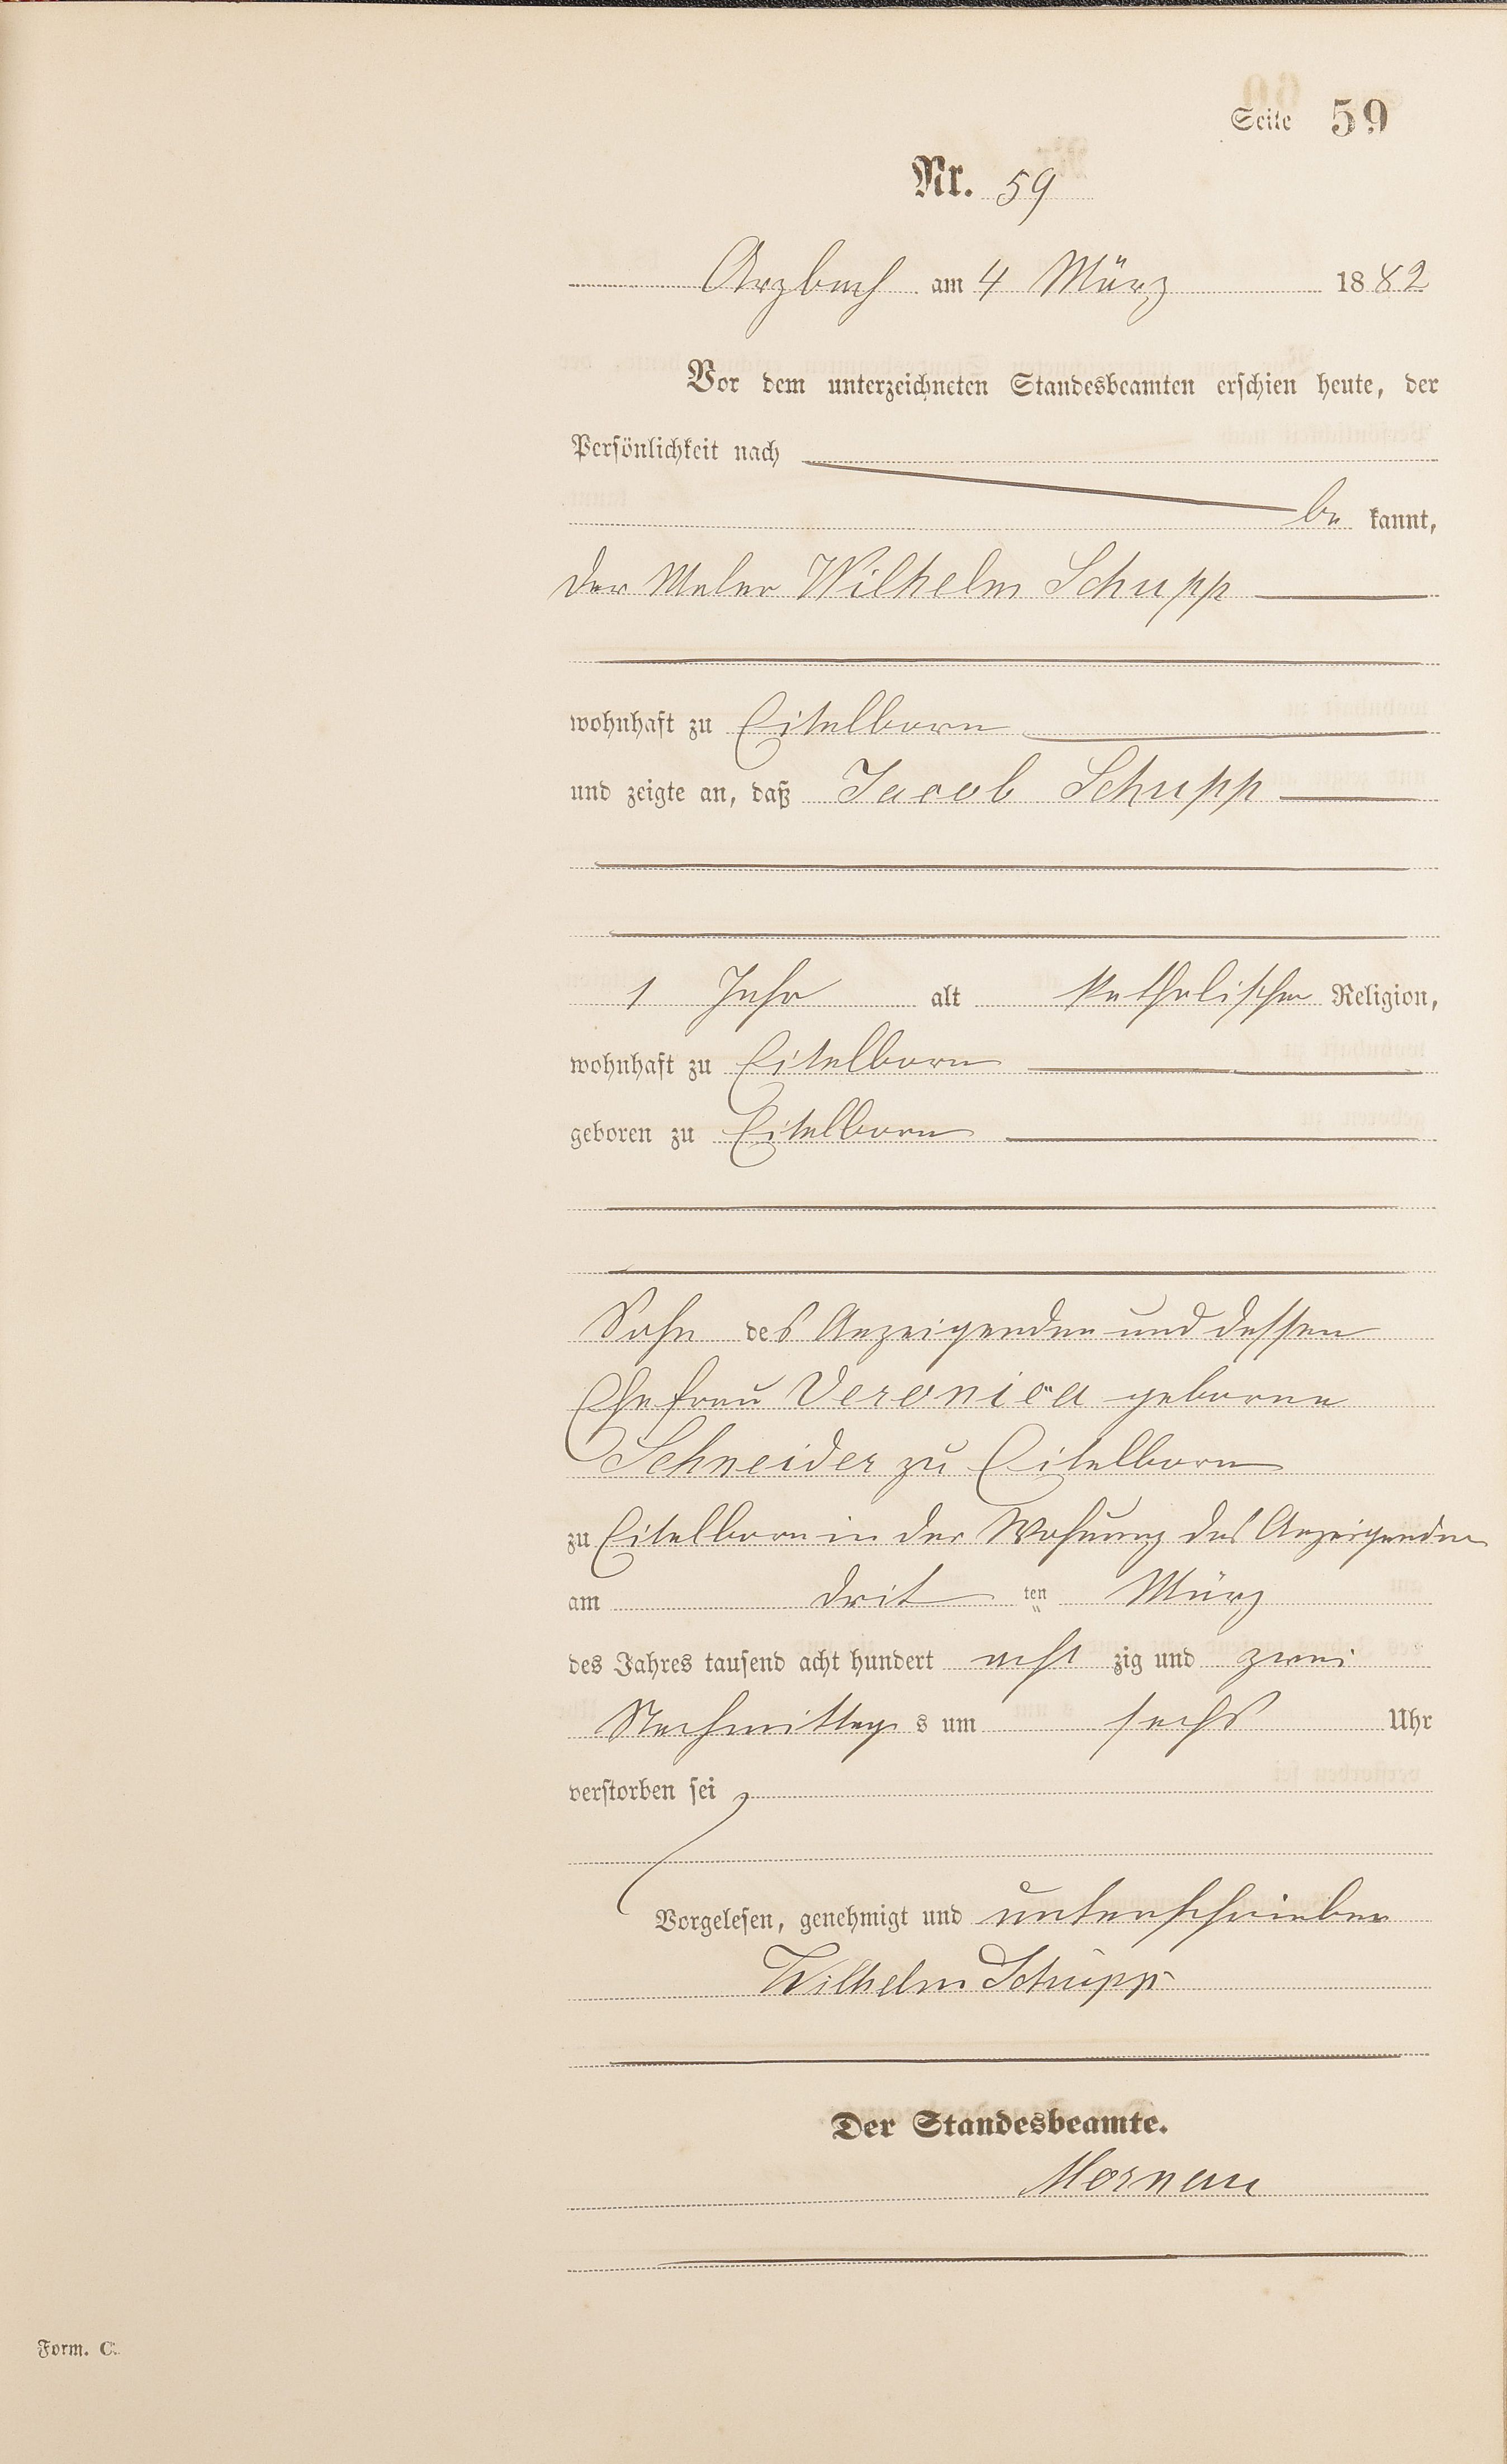 Seite 59
Nr. 59
Arzbach am 4 März 1882
Vor dem unterzeichneten Standesbeamten erschien heute, der
Persönlichkeit nach
be kannt,
der Maler Wilhelm Schupp
wohnhaft zu Eitelborn
und zeigte an, daß Jacob Schupp
1 Jahr alt katholischer Religion,
wohnhaft zu Eitelborn
geboren zu Eitelborn
Sohn des Anzeigenden und dessen
Ehefrau Veronica geborne
Schneider zu Eitelborn
zu Eitelborn in der Wohnung des Anzeigenden
am drit ten März
des Jahres tausend acht hundert acht zig und zwei
Nachmittag s um sechs Uhr
verstorben sei
Vorgelesen, genehmigt und unterschrieben
Wilhelm Schupp
Der Standesbeamte.
Form. C.